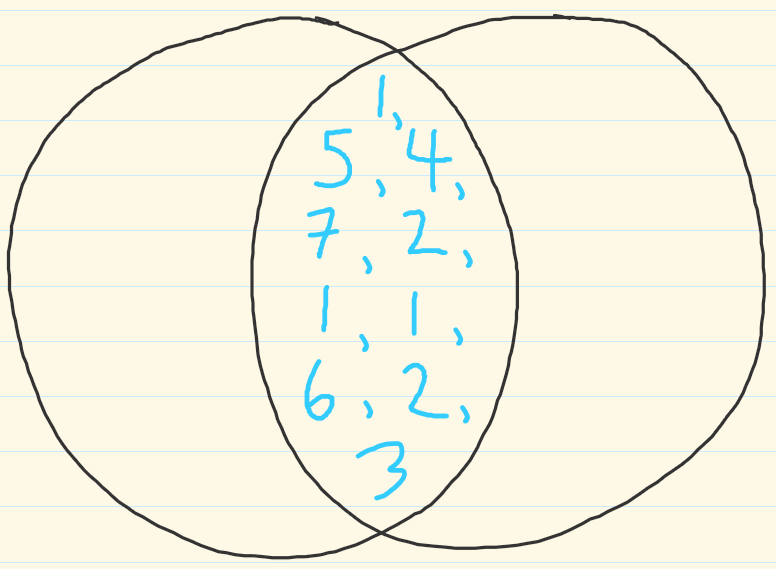 1,
5, 4,
7, 2,
1, 1,
6, 2,
3